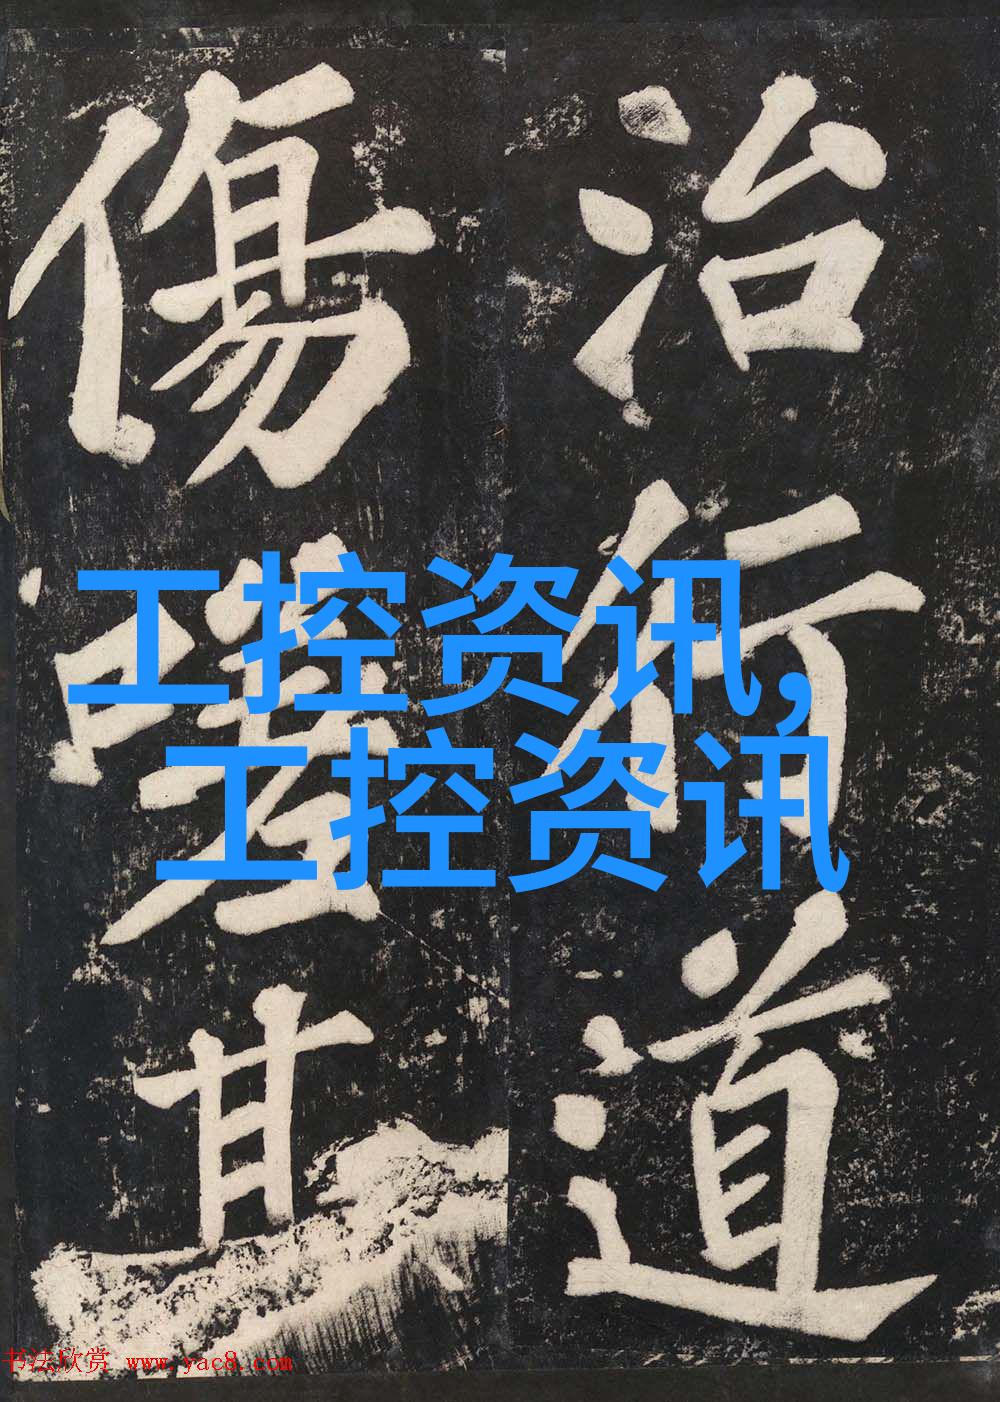 治行道
傷
其
工控资讯,
工控资讯
书法欣赏 www.yac8.com